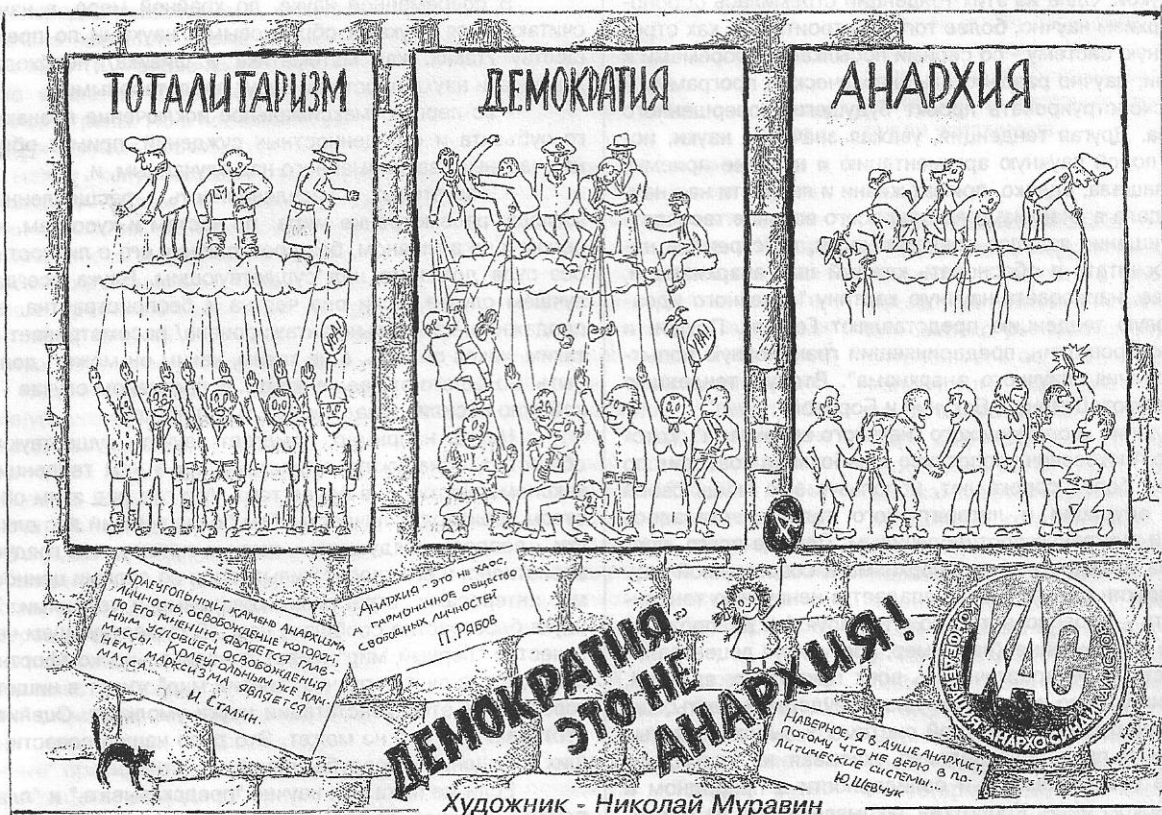 ТОТАЛИТАРИЗМ
ДЕМОКРАТИЯ
АНАРХИЯ
УРА
УРА
КРАЕУГОЛЬНЫЙ КАМЕНЬ АНАРХИЗМА
ЛИЧНОСТЬ, ОСВОБОЖДЕНИЕ КОТОРОЙ,
ПО ЕГО МНЕНИЮ ЯВЛЯЕТСЯ ГЛАВ
НЫМ УСЛОВИЕМ ОСВОБОЖДЕНИЯ
МАССЫ. КРАЕУГОЛЬНЫМ ЖЕ КАМ-
НЕМ МАРКСИЗМА ЯВЛЯЕТСЯ
МАССА
СТАЛИН
АНАРХИЯ - ЭТО НЕ ХАОС,
А ГАРМОНИЧНОЕ ОБЩЕСТВО
СВОБОДНЫХ ЛИЧНОСТЕЙ
П. РЯБОВ
А
ДЕМОКРАТИЯ
ЭТО НЕ
АНАРХИЯ!
КАС
КОНФЕДЕРАЦИЯ АНАРХО-СИНДИКАЛИСТОВ
НАВЕРНОЕ Я В ДУШЕ АНАРХИСТ,
ПОТОМУ ЧТО НЕ ВЕРЮ В ПО-
ЛИТИЧЕСКИЕ СИСТЕМЫ...
Ю. ШЕВЧУК
Художник - Николай Муравин